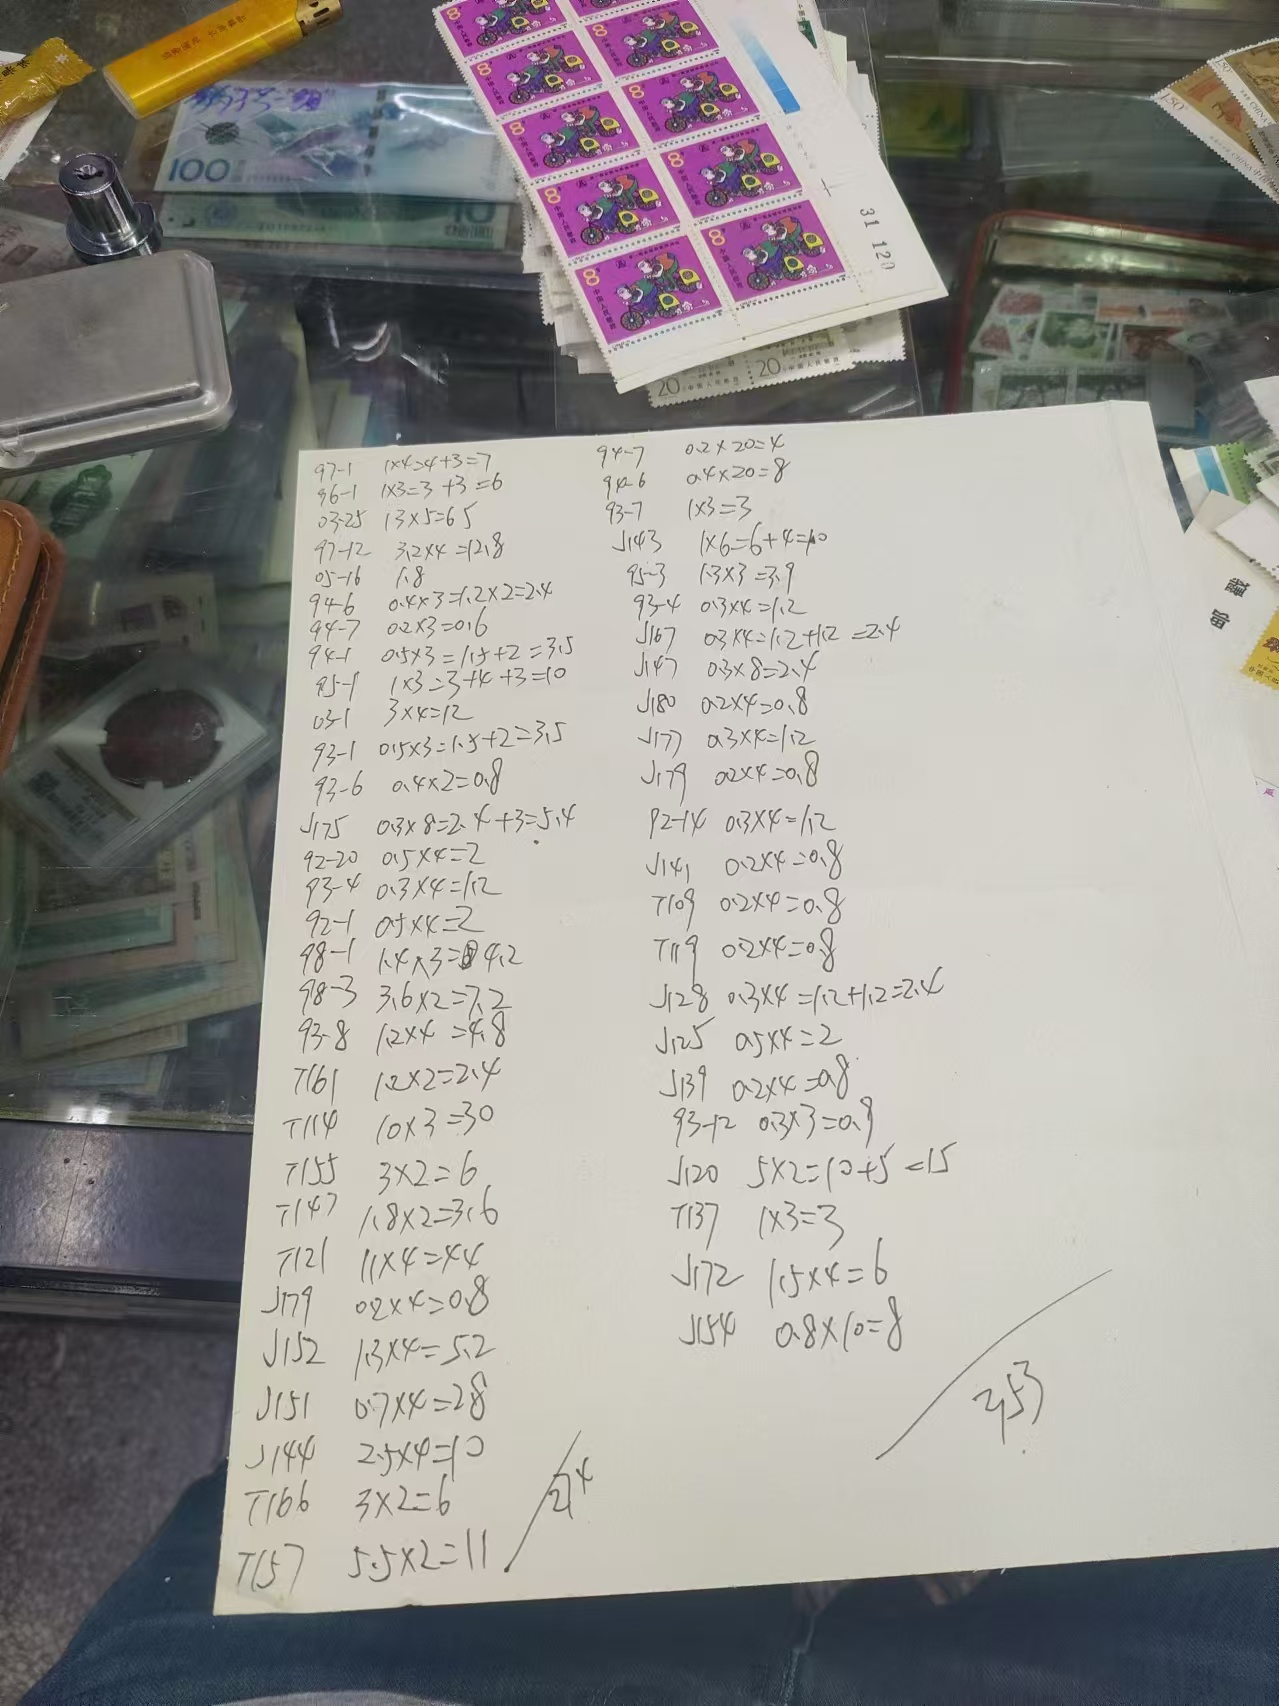 100
10
31 120
20 中国人民邮政
20 中国人民邮政
97-1 1×4=4+3=7
96-1 1×3=3+3=6
03-25 13×5=65
97-12 3.2×4=12.8
05-16 1.8
94-6 0.4×3=1.2×2=2.4
94-7 0.2×3=0.6
94-1 0.5×3=1.5+2=3.5
95-1 1×3=3+4+3=10
03-1 3×4=12
93-1 0.5×3=1.5+2=3.5
93-6 0.4×2=0.8
J175 0.3×8=2.4+3=5.4
92-20 0.5×4=2
93-4 0.3×4=1.2
92-1 0.5×4=2
98-1 1.4×3=4.2
98-3 3.6×2=7.2
93-8 1.2×4=4.8
T161 1.2×2=2.4
T114 10×3=30
T155 3×2=6
T147 1.8×2=3.6
T121 11×4=44
J179 0.2×4=0.8
J152 1.3×4=5.2
J151 0.7×4=2.8
J144 2.5×4=10
T166 3×2=6
T157 5.5×2=11
94-7 0.2×20=4
94-6 0.4×20=8
93-7 1×3=3
J143 1×6=6+4=10
95-3 1.3×3=3.9
93-4 0.3×4=1.2
J167 0.3×4=1.2+1.2=2.4
J147 0.3×8=2.4
J180 0.2×4=0.8
J177 0.3×4=1.2
J179 0.2×4=0.8
92-14 0.3×4=1.2
J141 0.2×4=0.8
T109 0.2×4=0.8
T119 0.2×4=0.8
J128 0.3×4=1.2+1.2=2.4
J125 0.5×4=2
J139 0.2×4=0.8
93-12 0.3×3=0.9
J120 5×2=10+5=15
T137 1×3=3
J172 1.5×4=6
J154 0.8×10=8